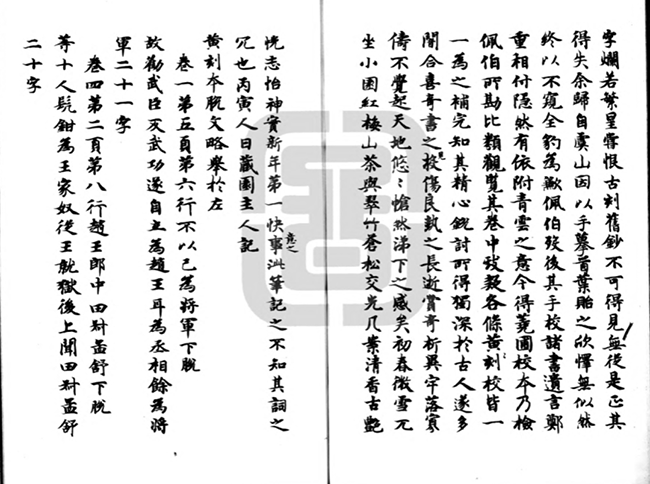 字爛若繁星嘗恨古刻舊鈔不可得見無從是正其
得失余歸自虞山因以手摹首葉貽之欣懌無似然
終以不窺全豹為歉佩伯歿後其手校諸書遺言鄭
重相付隱然有依附青雲之意今得蕘圃校本乃檢
佩伯所勘比類觀覽其卷中致疑各條黃刻校皆一
一為之補完知其精心銳討所得獨深於古人遂多
闇合喜奇書之被傷良執之長逝賞奇析異宇落寡
儔不覺起天地悠〻愴然涕下之感矣初春微雪兀
坐小園紅梅山茶與翠竹蒼松交光几案清香古艷
怳志怡神實新年第一快事洪筆記之不知其詞之
冗也丙寅人日藏園主人記
黃刻本脫文略舉於左
卷一第五頁第六行不以己為將軍下脫
故勸武臣反武功遂自立為趙王耳為丞相餘為將
軍二十一字
卷四第二頁第八行趙王郎中田叔孟舒下脫
等十人髡鉗為王家奴從王就獄後上聞田叔孟舒
二十字